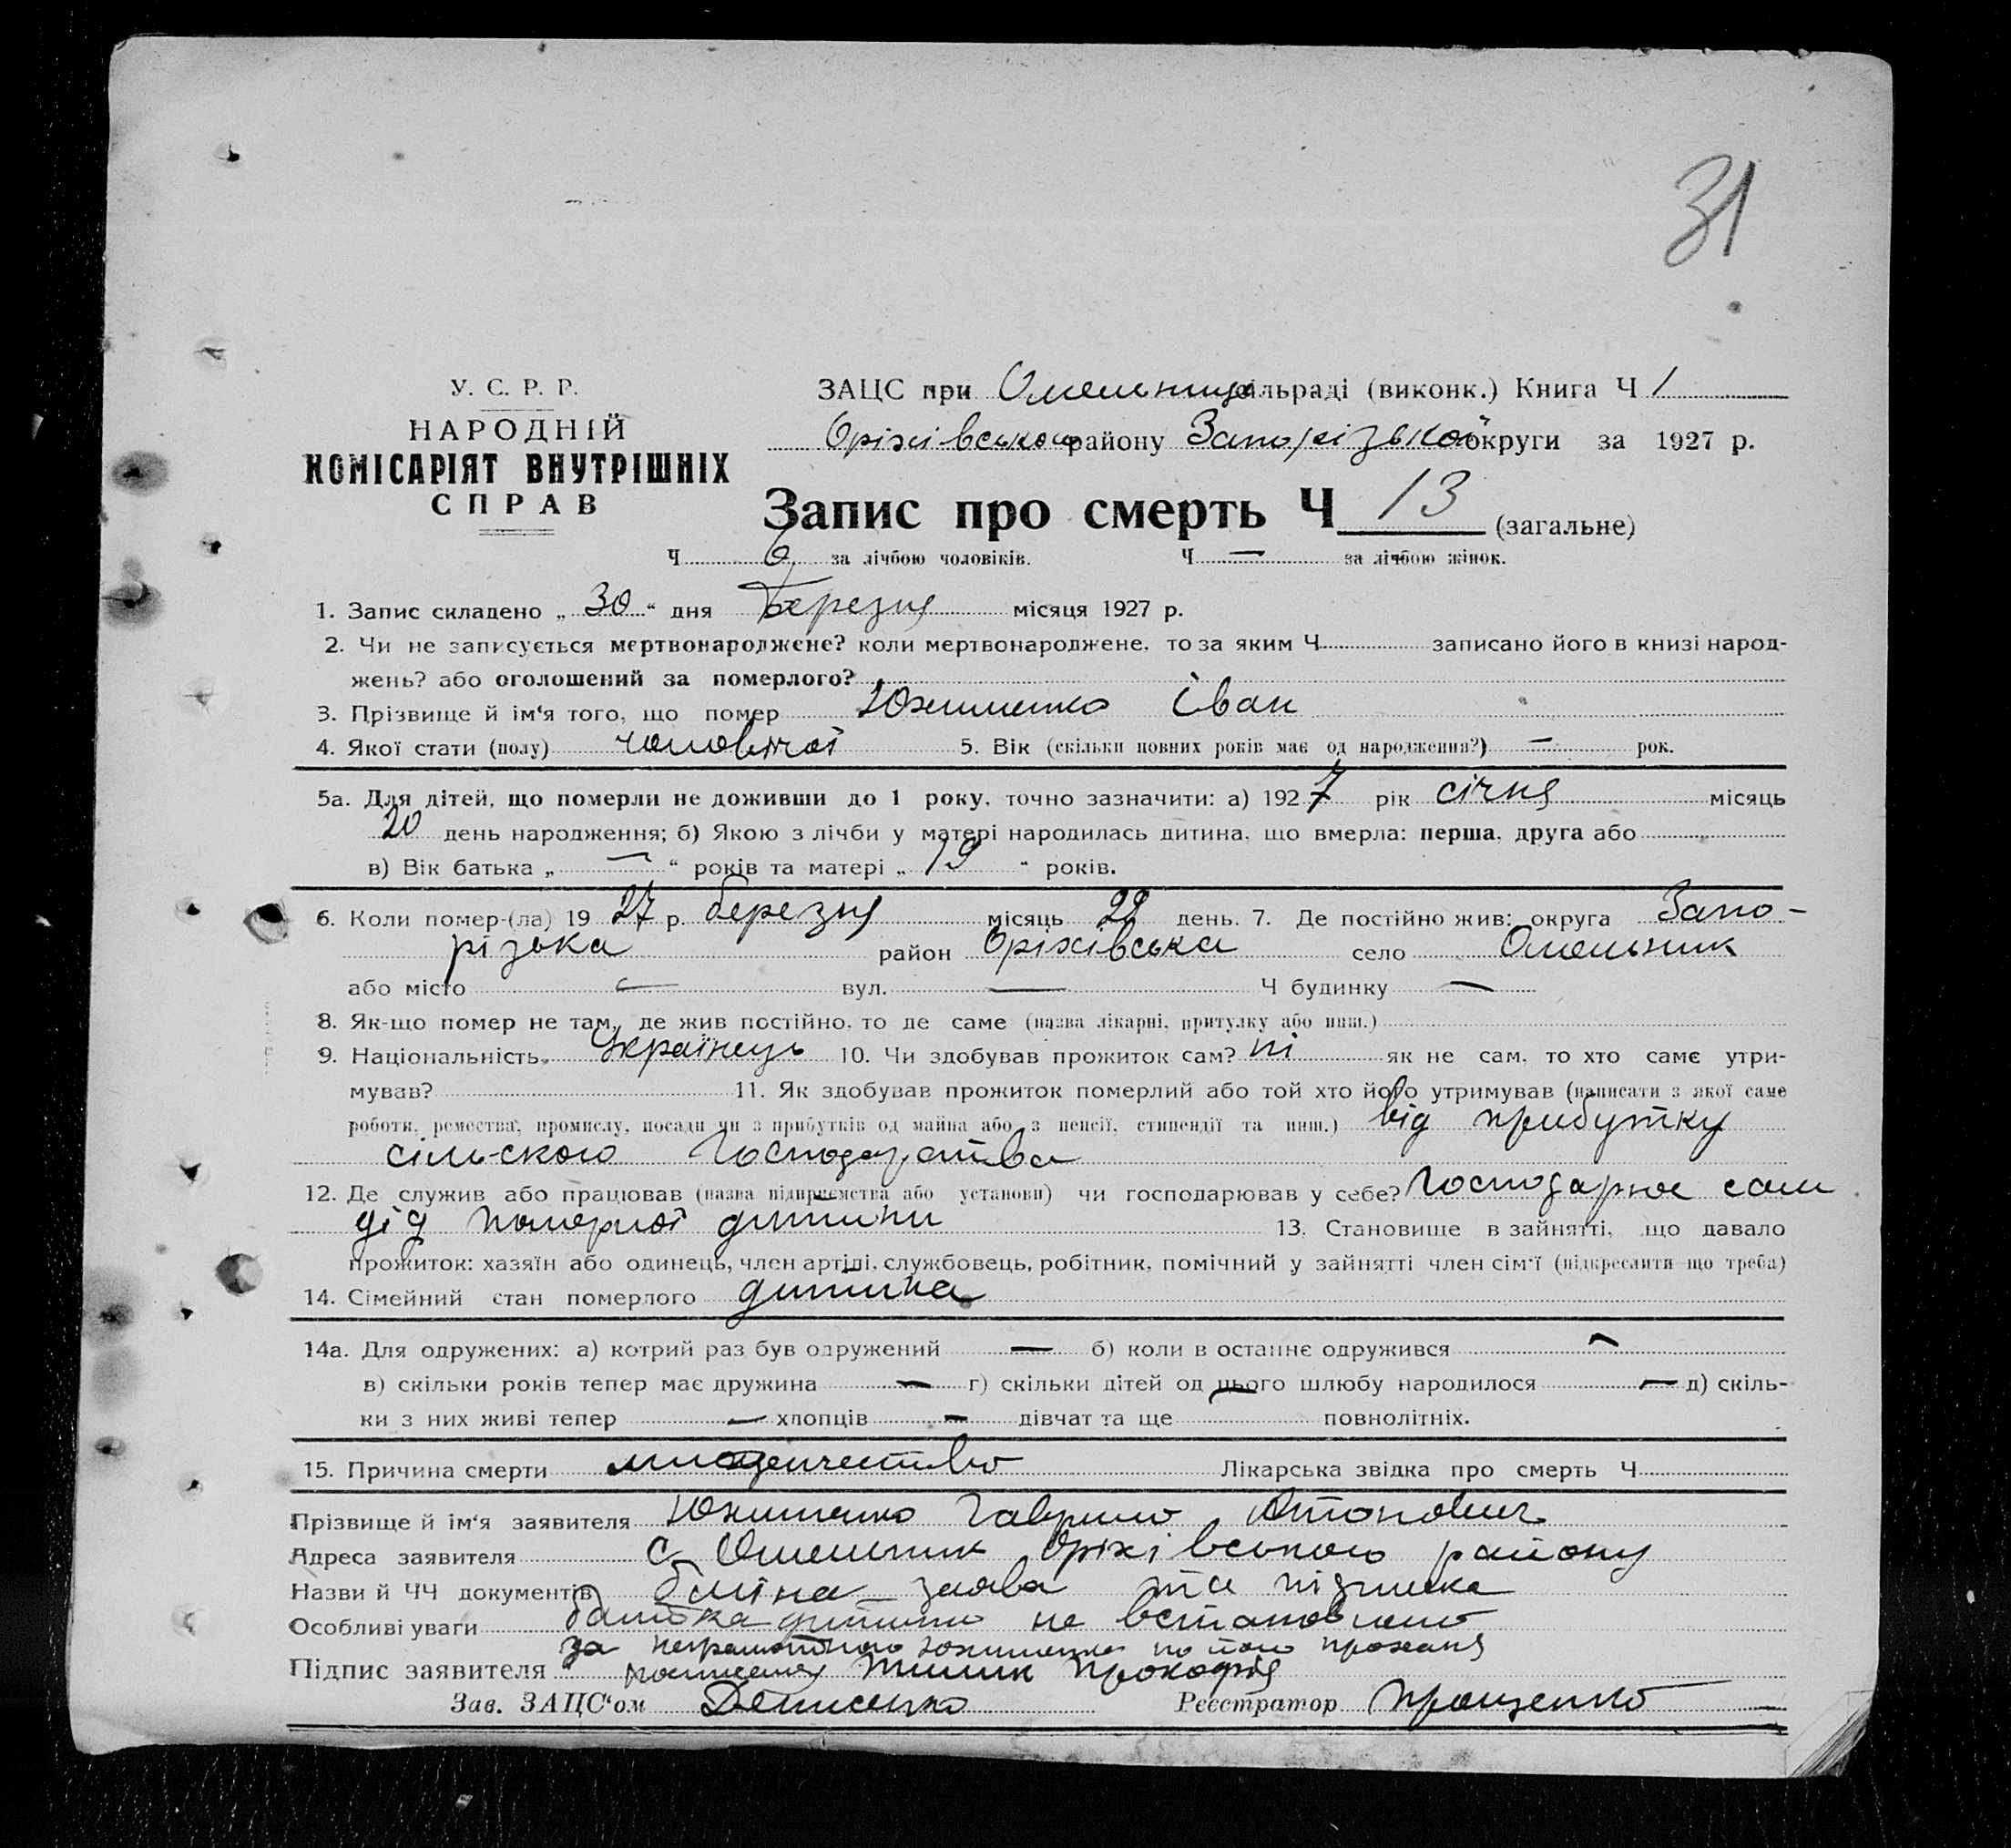 31
У. С. Р. Р.
НАРОДНІЙ
КОМІСАРІЯТ ВНУТРІШНІХ
СПРАВ
ЗАЦС при Омельницк сільраді (виконк.) Книга Ч 1
Оріхівського району Запорізької округи за 1927 р.
Запис про смерть Ч 13 (загальне)
Ч 6 за лічбою чоловіків. Ч — за лічбою жінок.
1. Запис складено „ 30 “ дня Березня місяця 1927 р.
2. Чи не записується мертвонароджене? коли мертвонароджене, то за яким Ч записано його в книзі народ-
жень? або оголошений за померлого?
3. Прізвище й ім'я того, що помер Юхименко Іван
4. Якої стати (полу) чоловічої 5. Вік (скільки повних років має од народження?) — рок.
5а. Для дітей, що померли не доживши до 1 року, точно зазначити: а) 1927 рік січня місяць
20 день народження; б) Якою з лічби у матері народилась дитина, що вмерла: перша, друга або
в) Вік батька „ — “ років та матері „ 19 “ років.
6. Коли помер-(ла) 1927 р. березня місяць 22 день. 7. Де постійно жив: округа Запо-
різька район Оріхівська село Омельник
або місто — вул. — Ч будинку —
8. Як-що помер не там, де жив постійно, то де саме (назва лікарні, притулку або инш.)
9. Національність Українець 10. Чи здобував прожиток сам? ні як не сам, то хто саме утри-
мував? 11. Як здобував прожиток померлий або той хто його утримував (написати з якої саме
роботи, ремества, промислу, посади чи з прибутків од майна або з пенсії, стипендії та инш.) від прибутку
сільского господарства
12. Де служив або працював (назва підприємства або установи) чи господарював у себе? Господарює сам
дід померлої дитини 13. Становище в зайнятті, що давало
прожиток: хазяїн або одинець, член артілі, службовець, робітник, помічний у зайнятті член сім'ї (підкреслити що треба)
14. Сімейний стан померлого дитина
14а. Для одружених: а) котрий раз був одружений — б) коли в останнє одружився —
в) скільки років тепер має дружина — г) скільки дітей од цього шлюбу народилося — д) скіль-
ки з них живі тепер — хлопців — дівчат та ще повнолітніх.
15. Причина смерти младенчество Лікарська звідка про смерть Ч
Прізвище й ім'я заявителя Юхименко Гаврило Антонович
Адреса заявителя с. Омельник Оріхівського району
Назви й ЧЧ документів заява та підписка
Особливі уваги батька дитини не встановлено
за неграмотного Юхименка по його проханя
Підпис заявителя росписався Прокофія
Зав. ЗАЦС'ом Денисенко Реєстратор Проценко